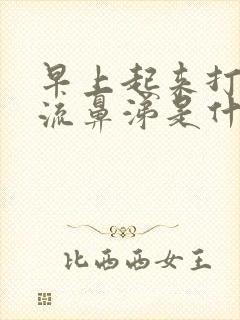 早上起来打
流鼻涕是什
比西西女王